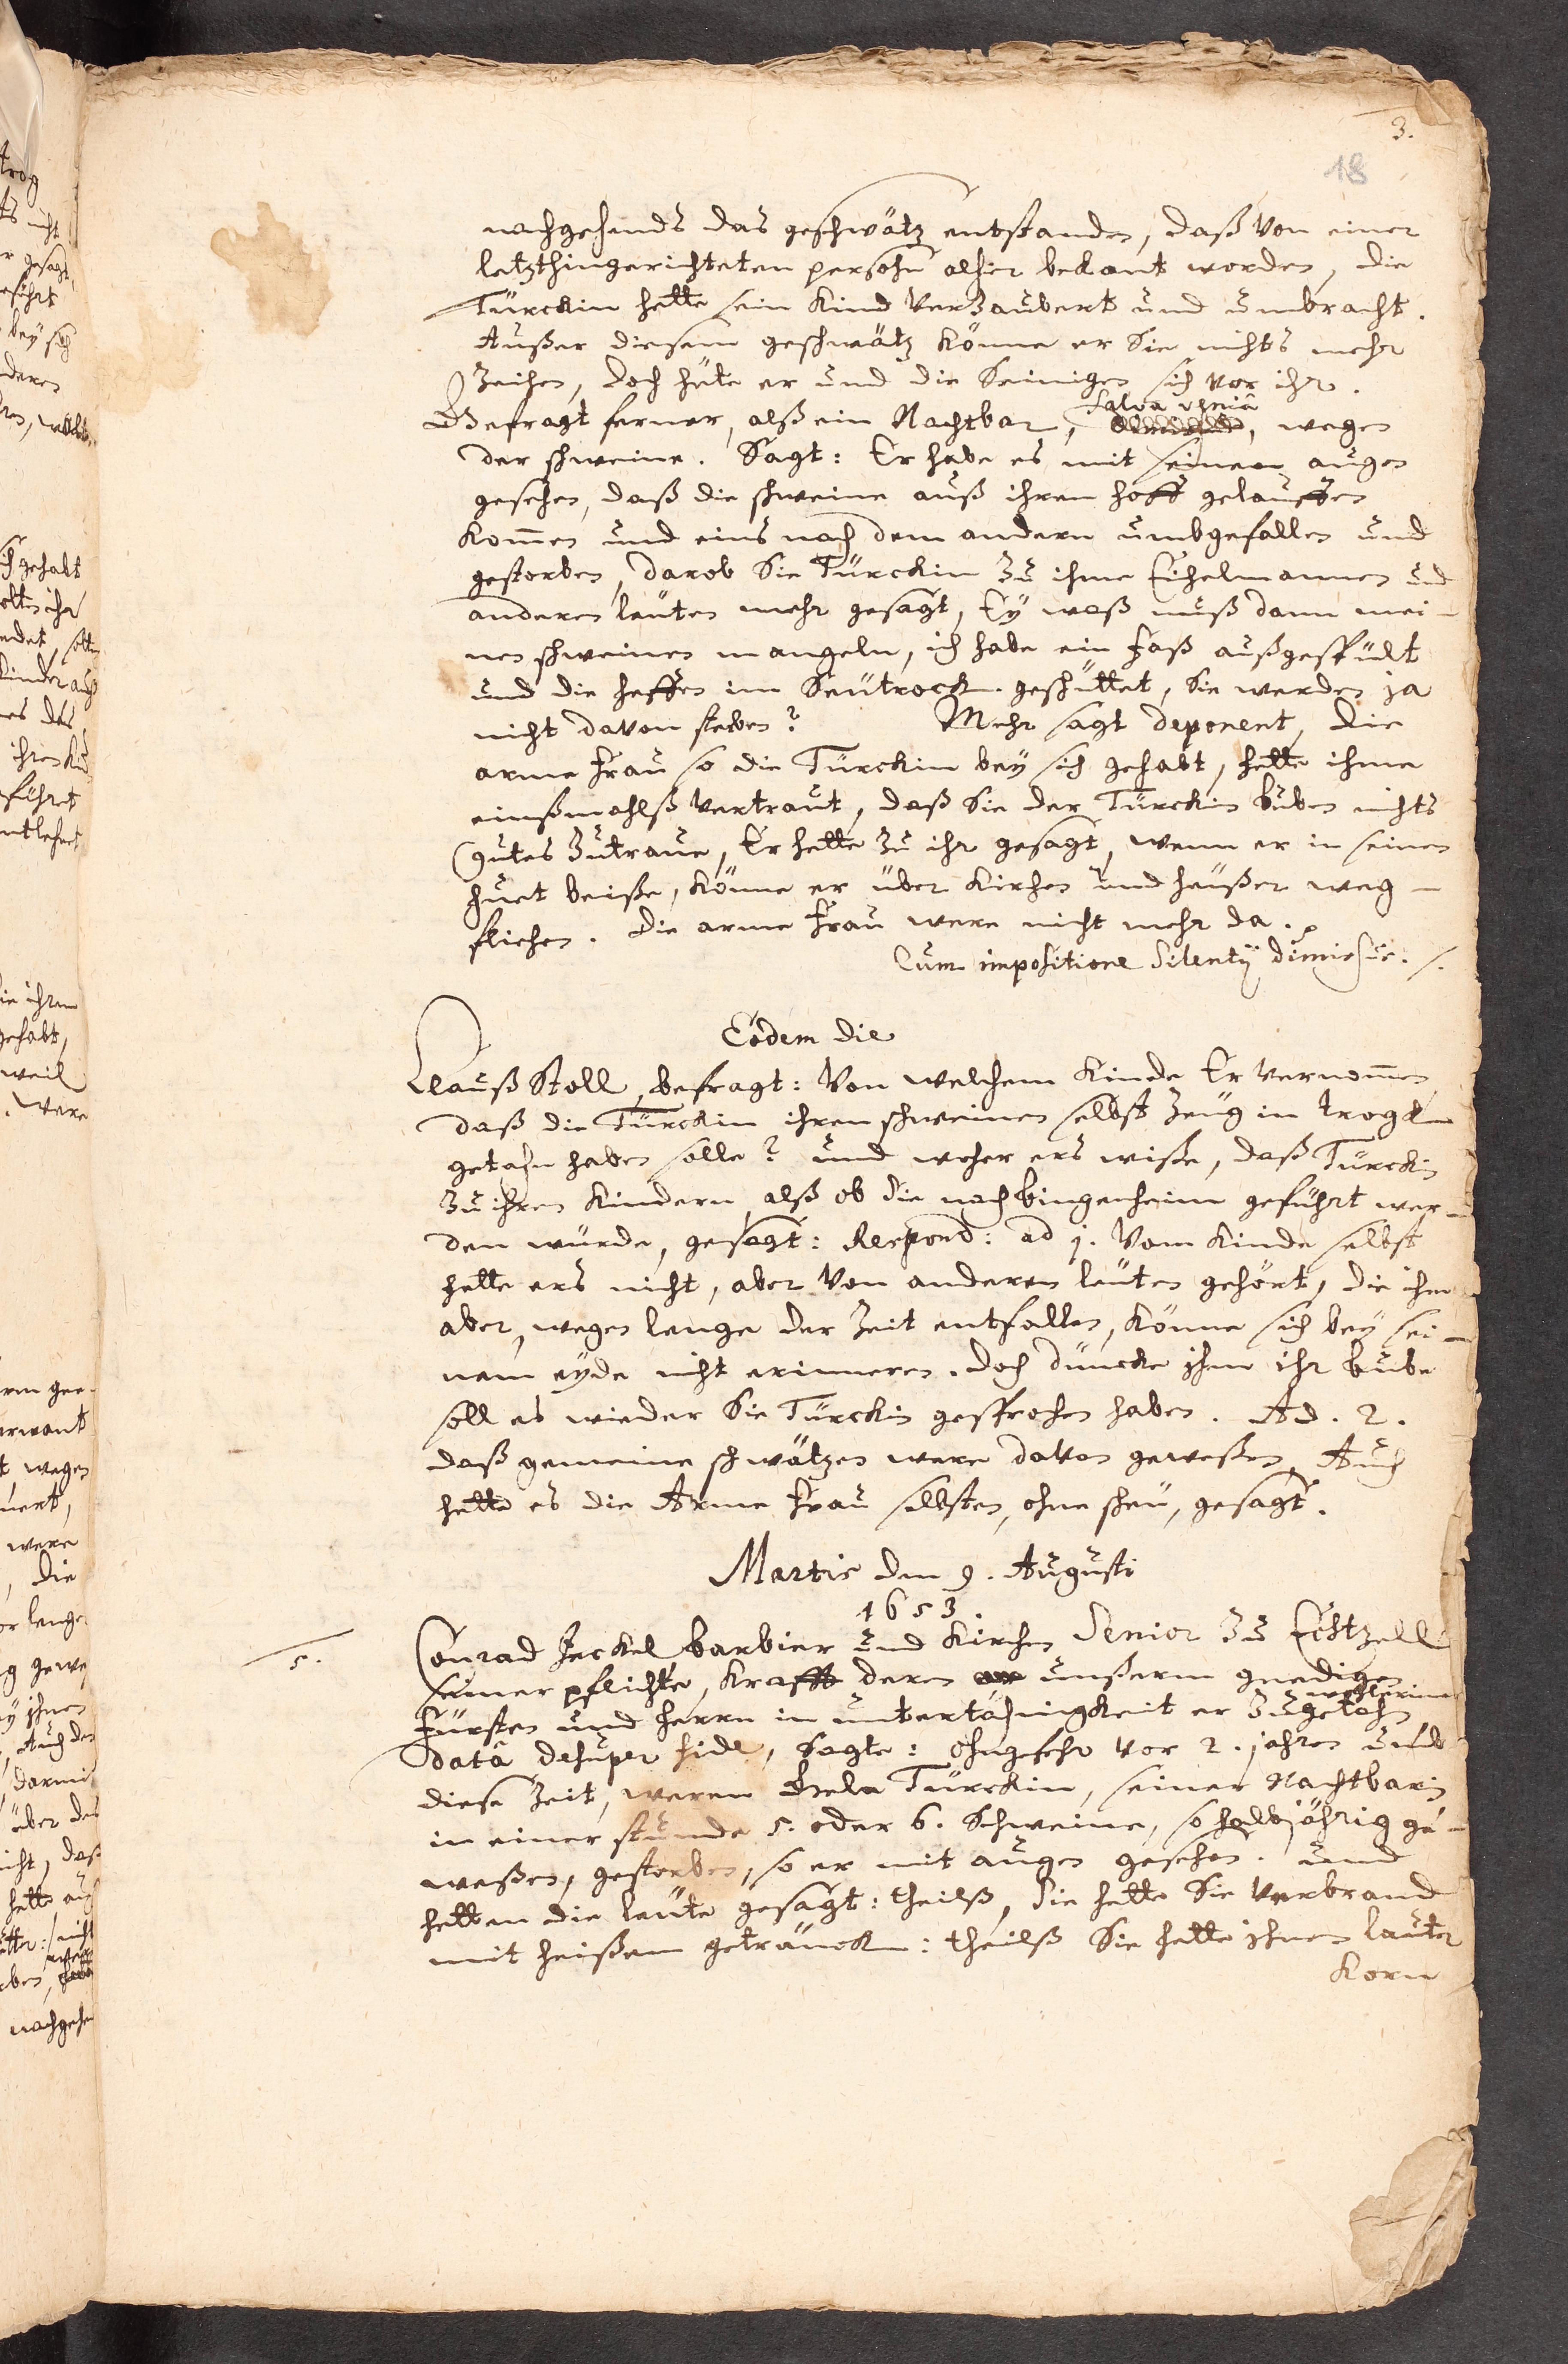 3.
18
nachgehends das geschwätz entstanden, daß von einer
letzthingerichteten persohn alhier bekant worden, die
Türckin hette sein Kind verzaubert und umbracht.
Außer diesem geschwätz könne er Sie nichts mehr
zeihen, doch hüte er und die Seinigen sich vor ihr.
Befragt ferner, alß ein Nachtbar, salva veniâ, wegen
der schweine. Sagt: Er habe es mit seinen augen
gesehen, daß die schweine auß ihrem hoff gelauffen
kommen und eins nach dem andern umbgefallen und
gestorben, darob Sie Türckin zu ihme Eichelmannen und
anderen leuten mehr gesagt, Ey waß muß dann mei-
nen schweinen mangeln, ich habe ein Faß außgespült
und die heffen im Seutrock geschüttet, Sie werden ja
nicht davon sterben? Mehr sagt deponent, die
arme Frau so die Türckin bey sich gehabt, hette ihme
einßmahlß vertraut, daß Sie der Türckin buben nichts
gutes zutraue, Er hette zu ihr gesagt, wenn er in seinen
huet beiße, könne er über Kirchen und heußer weg-
fliehen. Die arme Frau were nicht mehr da.
Cum impositione Silentij dimissus.
Eodem die
Clauß Stoll, befragt: Von welchem Kinde Er vernommen
daß die Türckin ihren schweinen selbst zeug in trogk
getahn haben solle? und woher ers wiße, daß Türckin
zu ihren Kindern, alß ob sie nach bingenheim geführt wer-
den würde, gesagt: Respond: ad j. Vom Kinde selbst
hette ers nicht, aber von anderen leuten gehört, die ihm
aber, wegen lenge der zeit entfallen, könne sich bey sei-
nem eyde nicht erinneren. Doch düncke ihm ihr bube
soll es wieder Sie Türckin gesprochen haben. Ad. 2.
daß gemeine schwätzen were davon geweßen, Auch
hette es die Arme Frau selbsten, ohne scheu, gesagt.
Martis den 9. Augusti
1653.
5.
Conrad Jeckel barbier und Kirchen Senior zu Echtzell
seiner pflichte, krafft deren unßerm gnedigen
Fürsten und Herrn in untertähnigkeit er zugetahn
datâ desuper fide, Sagte: Ohngefehr vor 2. jahren umb
diese zeit, weren Gela Türckin, seiner Nachtbarin
in einer stunde 5. oder 6. Schweine, so halbjährig ge-
weßen, gestorben, so er mit augen gesehen. und
hetten die leute gesagt: theilß, Sie hette Sie verbrand
mit heißem geträncke: theilß Sie hette ihnen lauter
Korn